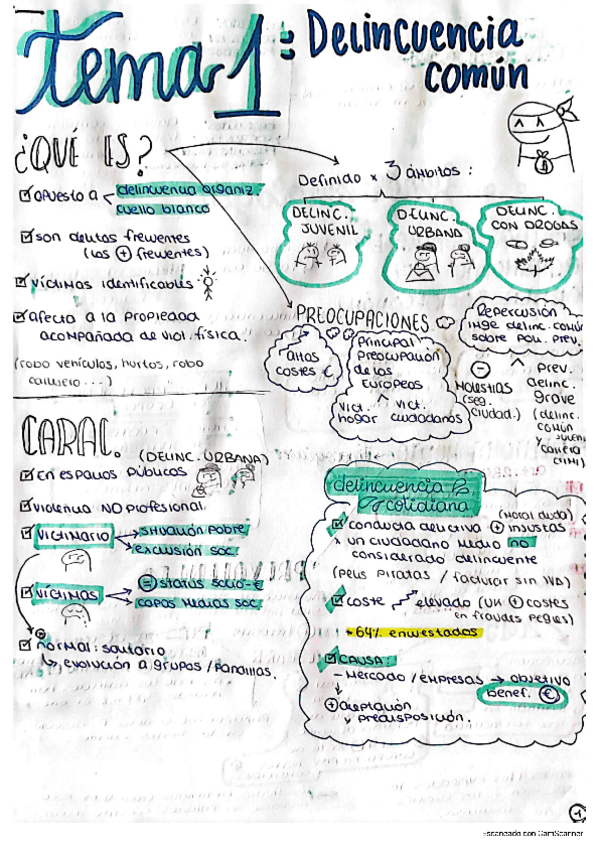 Tema 1: Delincuencia
común
¿QUÉ ES?
opuesto a delincuencia organiz.
cuello blanco
son delitos frecuentes
(los + frecuentes)
víctimas identificables
afecta a la propiedad
acompañada de viol. física.
(robo vehículos, hurtos, robo
callejero ...)
Definido x 3 ámbitos:
DELINC.
JUVENIL
DELINC.
URBANA
DELINC.
CON DROGAS
PREOCUPACIONES
altos
costes €
Principal
preocupación
de los
europeos
vict.
hogar
vict.
ciudadanos
Repercusión
delinc. común
sobre pol. prev.
-
MOLESTIAS
(seg.
ciudad.)
Prev.
delinc.
grave
(delinc.
común
y juvenil
carrera
crim)
CARAC. (DELINC. URBANA)
En espacios públicos
violencia NO profesional
VICTIMARIO
situación pobre
exclusión soc.
VÍCTIMAS
= status socio-€
capas medias soc.
normal: solitario
evolución a grupos / pandillas.
delincuencia
cotidiana
conducta delictiva (moral duda) + injustas
x un ciudadano medio no
considerado delincuente
(pelis piratas / facturar sin IVA)
coste elevado (un + costes
en fraudes peques)
64% encuestados
CAUSA:
- Mercado / empresas → objetivo
benef. €
+ aceptación
y predisposición.
1
Escaneado con CamScanner